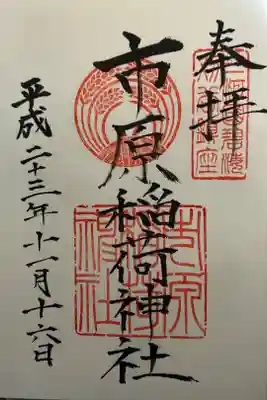 奉拝
市原稲荷神社
平成二十三年十一月十六日